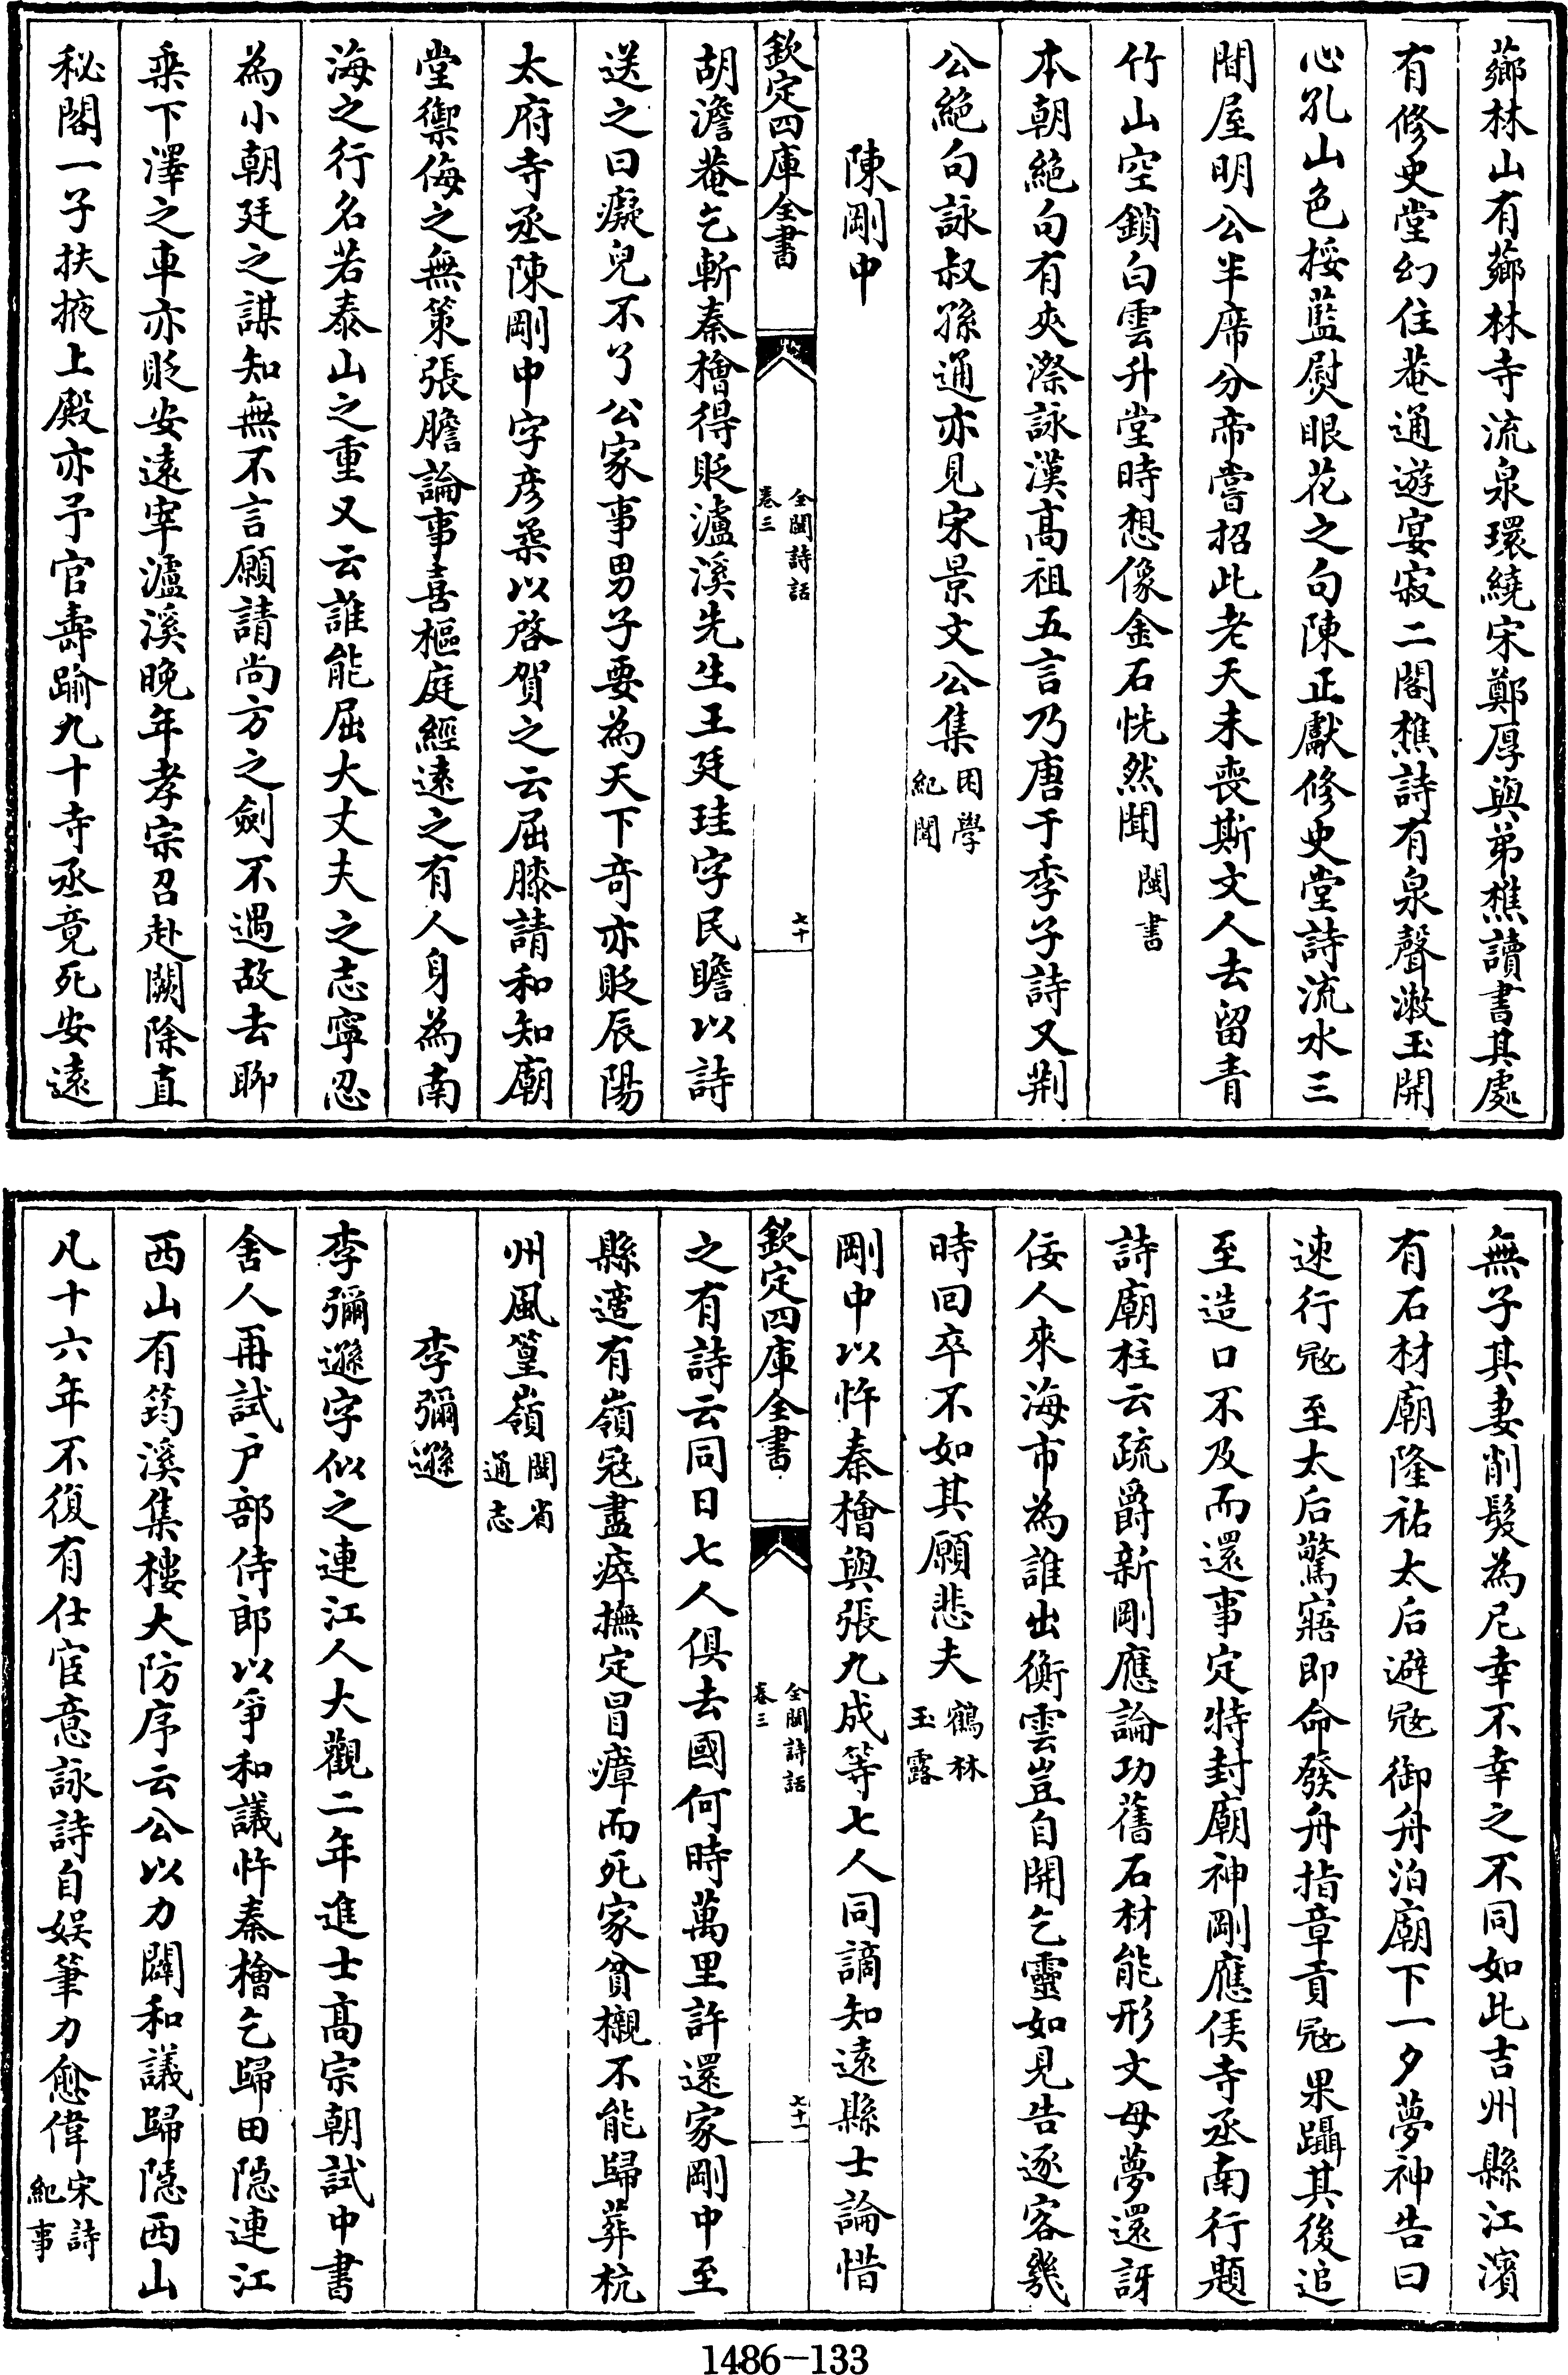 薌林山有薌林寺流泉環繞宋鄭厚與弟樵讀書其處
有修史堂幻住菴通遊宴寂二閣樵詩有泉聲漱玉開
心孔山色挼藍熨眼花之句陳正獻修史堂詩流水三
間屋明公半席分帝嘗招此老天未喪斯文人去留青
竹山空鎖白雲升堂時想像金石恍然聞閩書
本朝絕句有夾漈詠漢高祖五言乃唐于季子詩又荆
公絕句詠叔孫通亦見宋景文公集困學紀聞
陳剛中
欽定四庫全書
全閩詩話
卷三
七十
胡澹菴乞斬秦檜得貶瀘溪先生王廷珪字民瞻以詩
送之曰癡兒不了公家事男子要為天下奇亦貶辰陽
太府寺丞陳剛中字彥柔以啓賀之云屈膝請和知廟
堂禦侮之無策張膽論事喜樞庭經遠之有人身為南
海之行名若泰山之重又云誰能屈大丈夫之志寧忍
為小朝廷之謀知無不言願請尚方之劍不遇故去聊
乘下澤之車亦貶安遠宰瀘溪晚年孝宗召赴闕除直
秘閣一子扶掖上殿亦予官壽踰九十寺丞竟死安遠
無子其妻削髮為尼幸不幸之不同如此吉州縣江濱
有石材廟隆祐太后避㓂御舟泊廟下一夕夢神告曰
速行㓂至太后驚寤即命發舟指章貢㓂果躡其後追
至造口不及而還事定特封廟神剛應侯寺丞南行題
詩廟柱云疏爵新剛應論功舊石材能形文母夢還訝
佞人來海市為誰出衡雲豈自開乞靈如見告逐客幾
時回卒不如其願悲夫鶴林玉露
剛中以忤秦檜與張九成等七人同謫知遠縣士論惜
欽定四庫全書
全閩詩話
卷三
七十一
之有詩云同日七人俱去國何時萬里許還家剛中至
縣適有嶺寇盡瘁撫定冒瘴而死家貧櫬不能歸葬杭
州風篁嶺閩省通志
李彌遜
李彌遜字似之連江人大觀二年進士高宗朝試中書
舍人再試户部侍郎以爭和議忤秦檜乞歸田隠連江
西山有筠溪集樓大防序云公以力闢和議歸隠西山
凡十六年不復有仕宦意詠詩自娱筆力愈偉宋詩紀事
1486—133